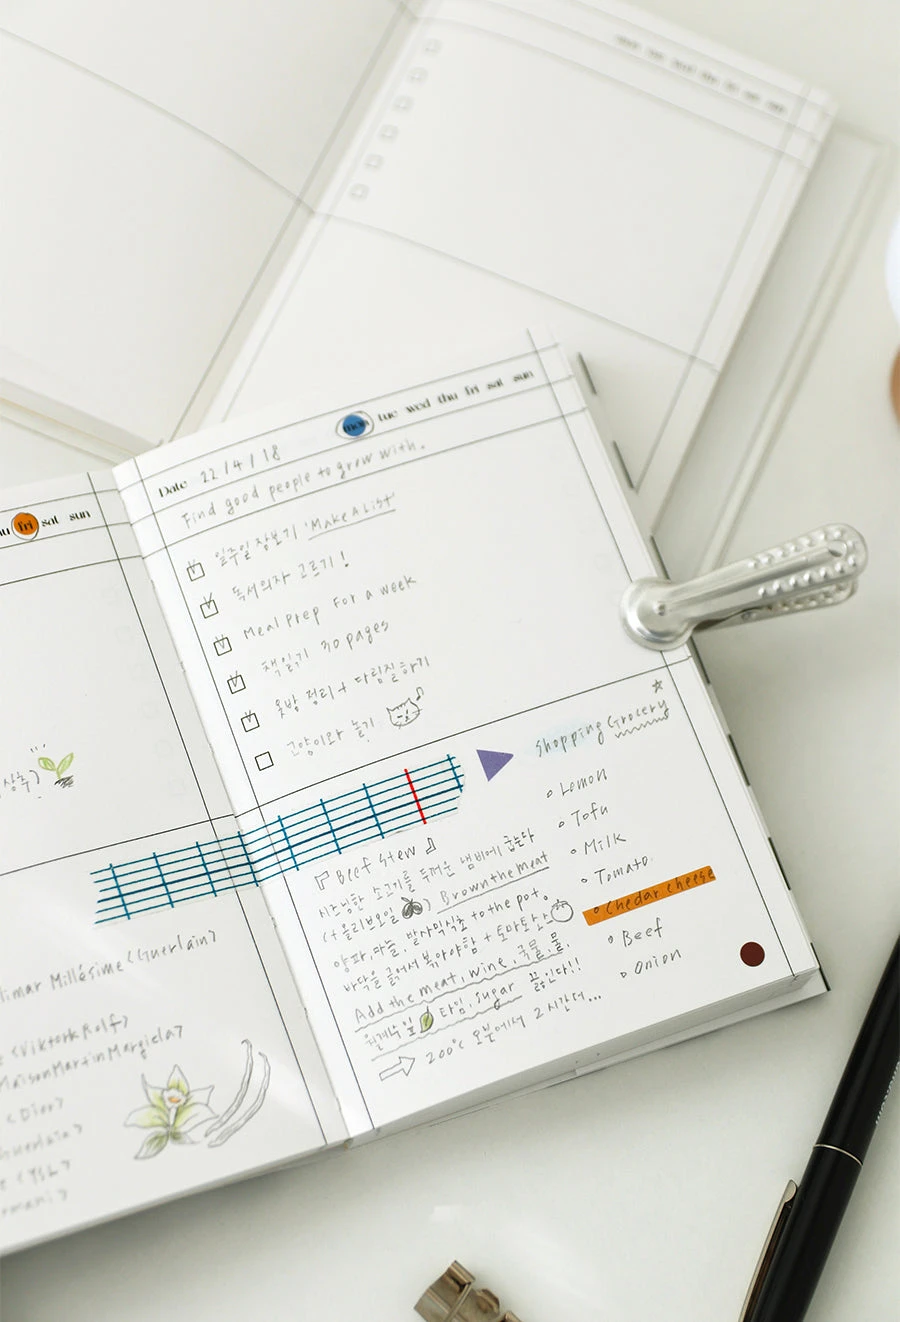 fri sat sun
상추)
limar Millésime <Guerlain>
<Viktor&Rolf>
MaisonMartinMargiela>
<Dior>
Guerlain>
<YSL>
Date 22/4/18 mon tue wed thu fri sat sun
Find good people to grow with.
일주일 장보기 'Make A List'
독서의자 고르기!
Meal prep For a week
책읽기 30 pages
옷방 정리 + 다림질하기
고양이와 놀기.
Shopping Grocery
Lemon
Tofu
Milk
Tomato
Chedar cheese
Beef
Onion
『Beef Stew』
시즈닝한 소고기를 두꺼운 냄비에 굽는다
(+올리브오일) Brown the meat
양파, 마늘, 발사믹식초 to the pot.
바닥을 긁어서 볶아야함 + 토마토산
Add the meat, wine, 국물, 물,
월계수잎 타임, sugar 끓인다!!
200°c 오븐에서 2시간더...